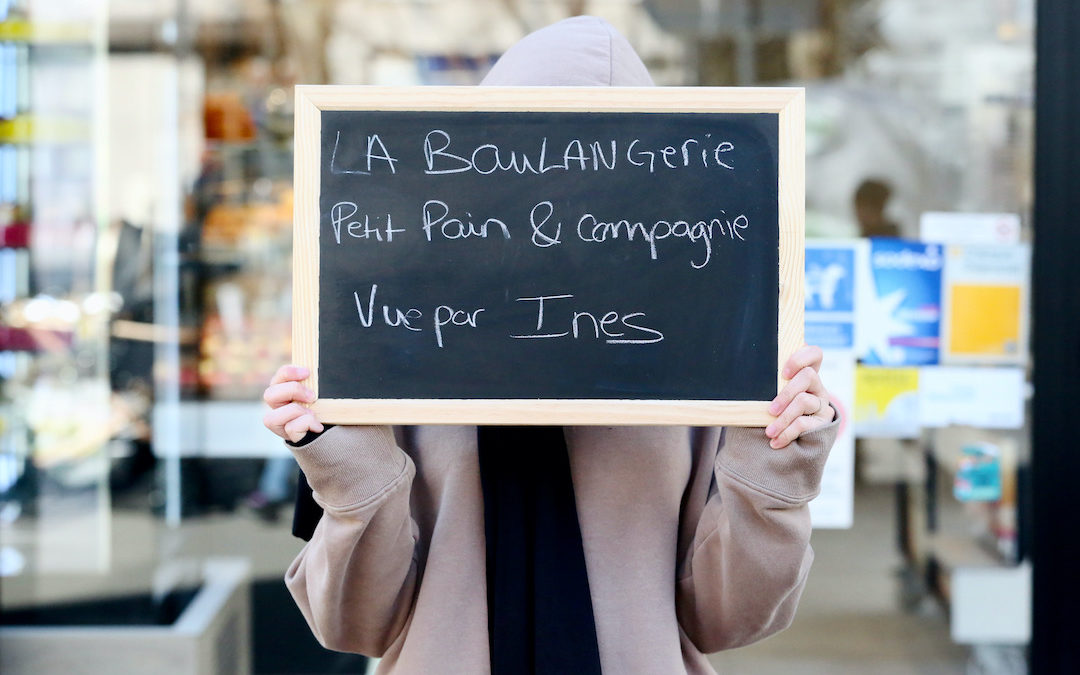 LA BOULANGerie
Petit Pain & campagnie
Vue par Ines